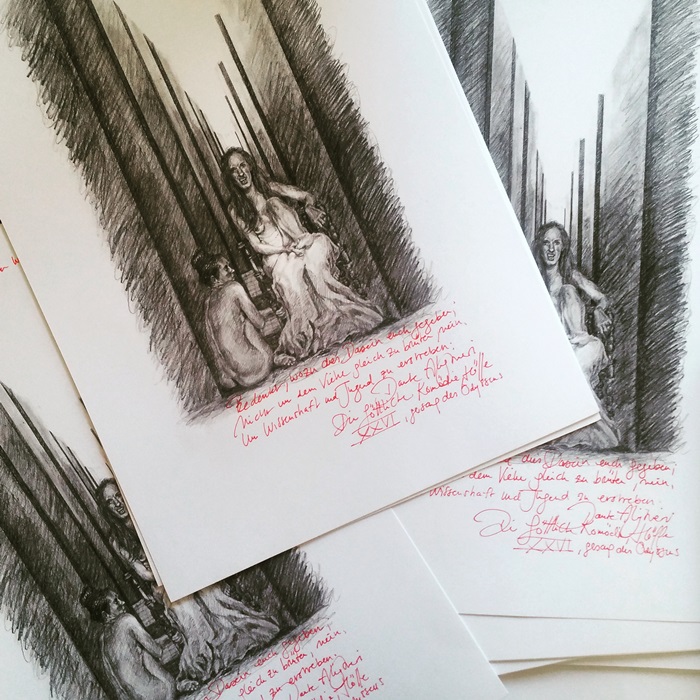 Bedenkt, wozu dies Dasein euch gegeben;
Nicht um dem Viehe gleich zu brüten, nein,
Um Wissenschaft und Tugend zu erstreben.
Dante Alighieri
Die Göttliche Komödie Hölle
XXVI, gesang des Odysseus
dies Dasein euch gegeben;
dem Viehe gleich zu brüten, nein,
Wissenschaft und Tugend zu erstreben.
Dante Alighieri
Die Göttliche Komödie Hölle
XXVI, gesang des Odysseus
Dasein euch gegeben;
gleich zu brüten, nein,
zu erstreben.
Dante Alighieri
Hölle